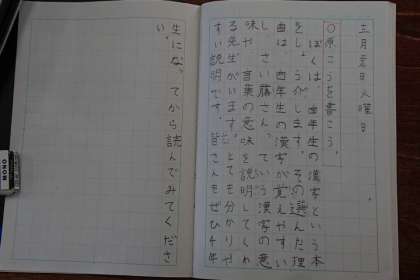 五月日火曜日
○原こうを書こう。
ぼくは、四年生の漢字という本
をしょうかいします。その選んだ理
由は、四年生の漢字が覚えやすい
し、さい藤さんっていう漢字の意
味や言葉の意味を説明してくれ
る先生がいます。とても分かりや
すい説明です。皆さんもぜひ4年
生になってから読んでみてくださ
い。
MONO